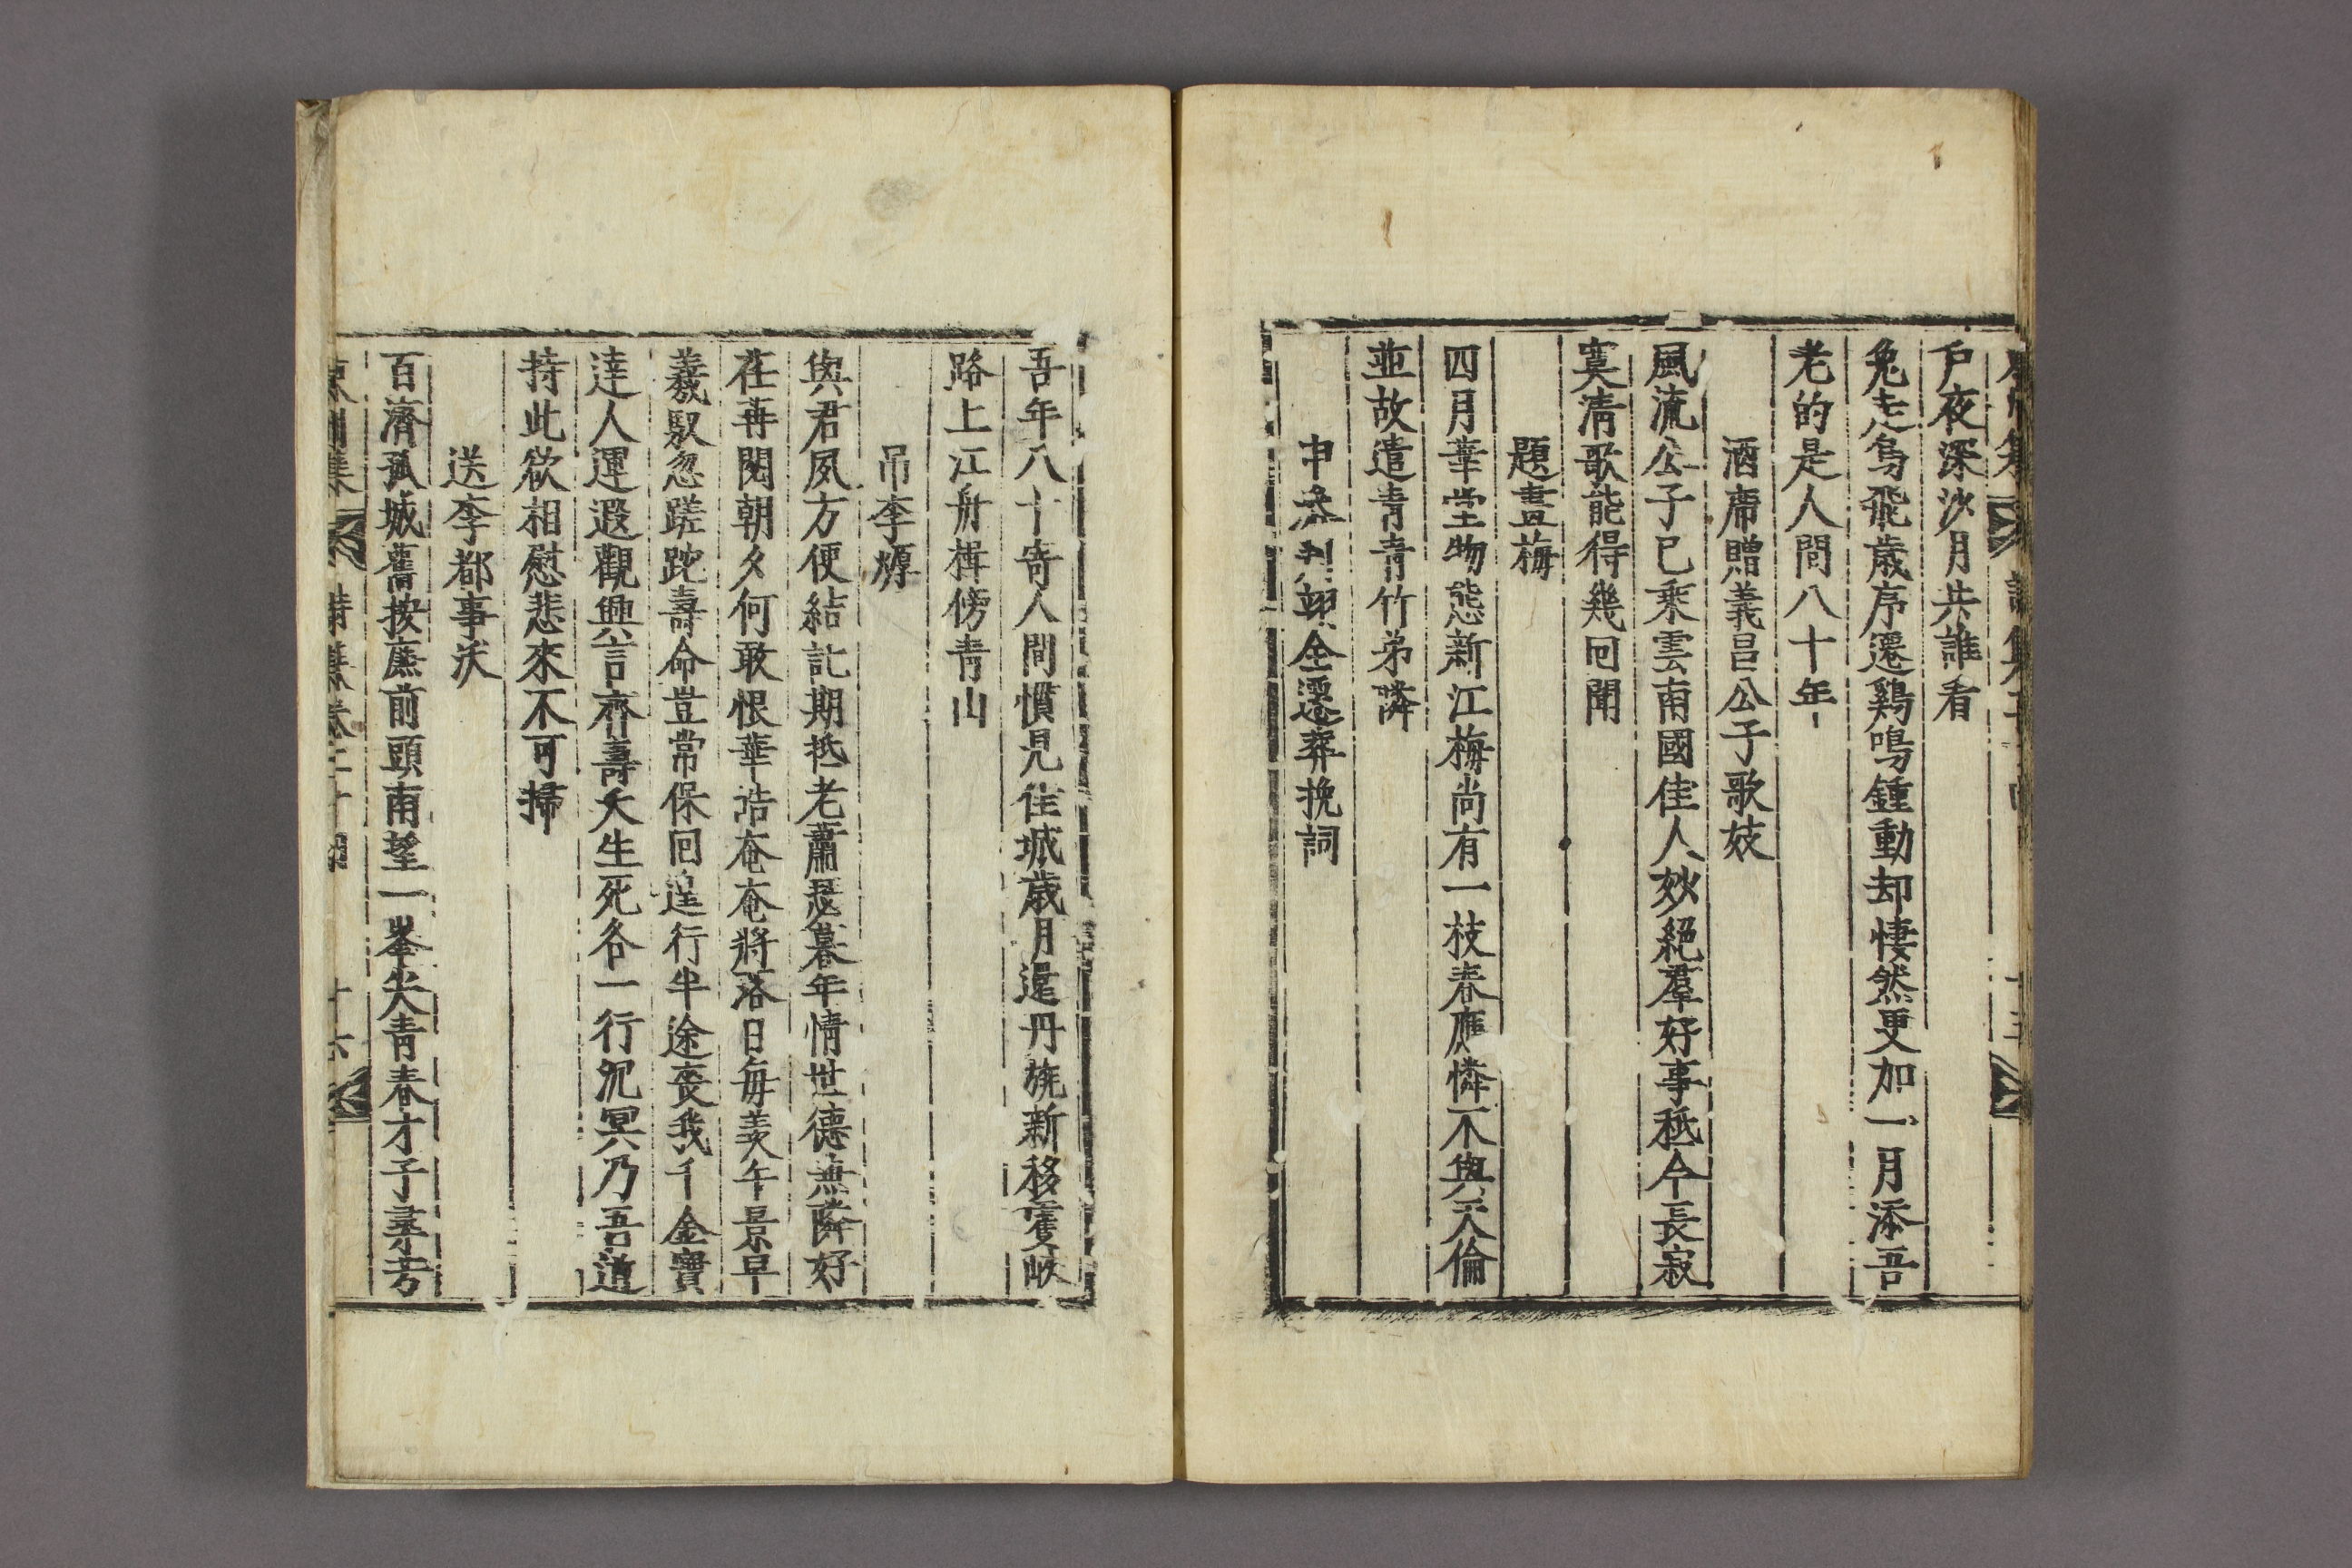 戶夜深沙月共誰看
兔走烏飛歲序遷鷄鳴鍾動却悽然更加一月添吾
老的是人間八十年
酒席贈義昌公子歌妓
風流公子已乘雲南國佳人妙絕羣好事秪今長寂
寞淸歌能得幾回聞
題畫梅
四月華堂物態新江梅尙有一枝春應憐不與天人倫
並故遣靑靑竹弟隣
申叅判翊全遷葬挽詞
吾年八十寄人間慣見佳城歲月還丹旐新移雙峽
路上江舟楫傍靑山
吊李㷜
與君夙方便結託期抵老蕭瑟暮年情世德無隣好
在再閱朝夕何敢恨華皓奄奄將落日每羨午景早
羲馭忽蹉跎壽命豈常保回遑行半途喪我千金寶
達人運遐觀興言齊壽夭生死各一行沉冥乃吾道
持此欲相慰悲來不可掃
送李都事沃
百濟孤城舊按廉前頭南望一峯尖靑春才子尋芳
東州集 詩集卷二十 十六